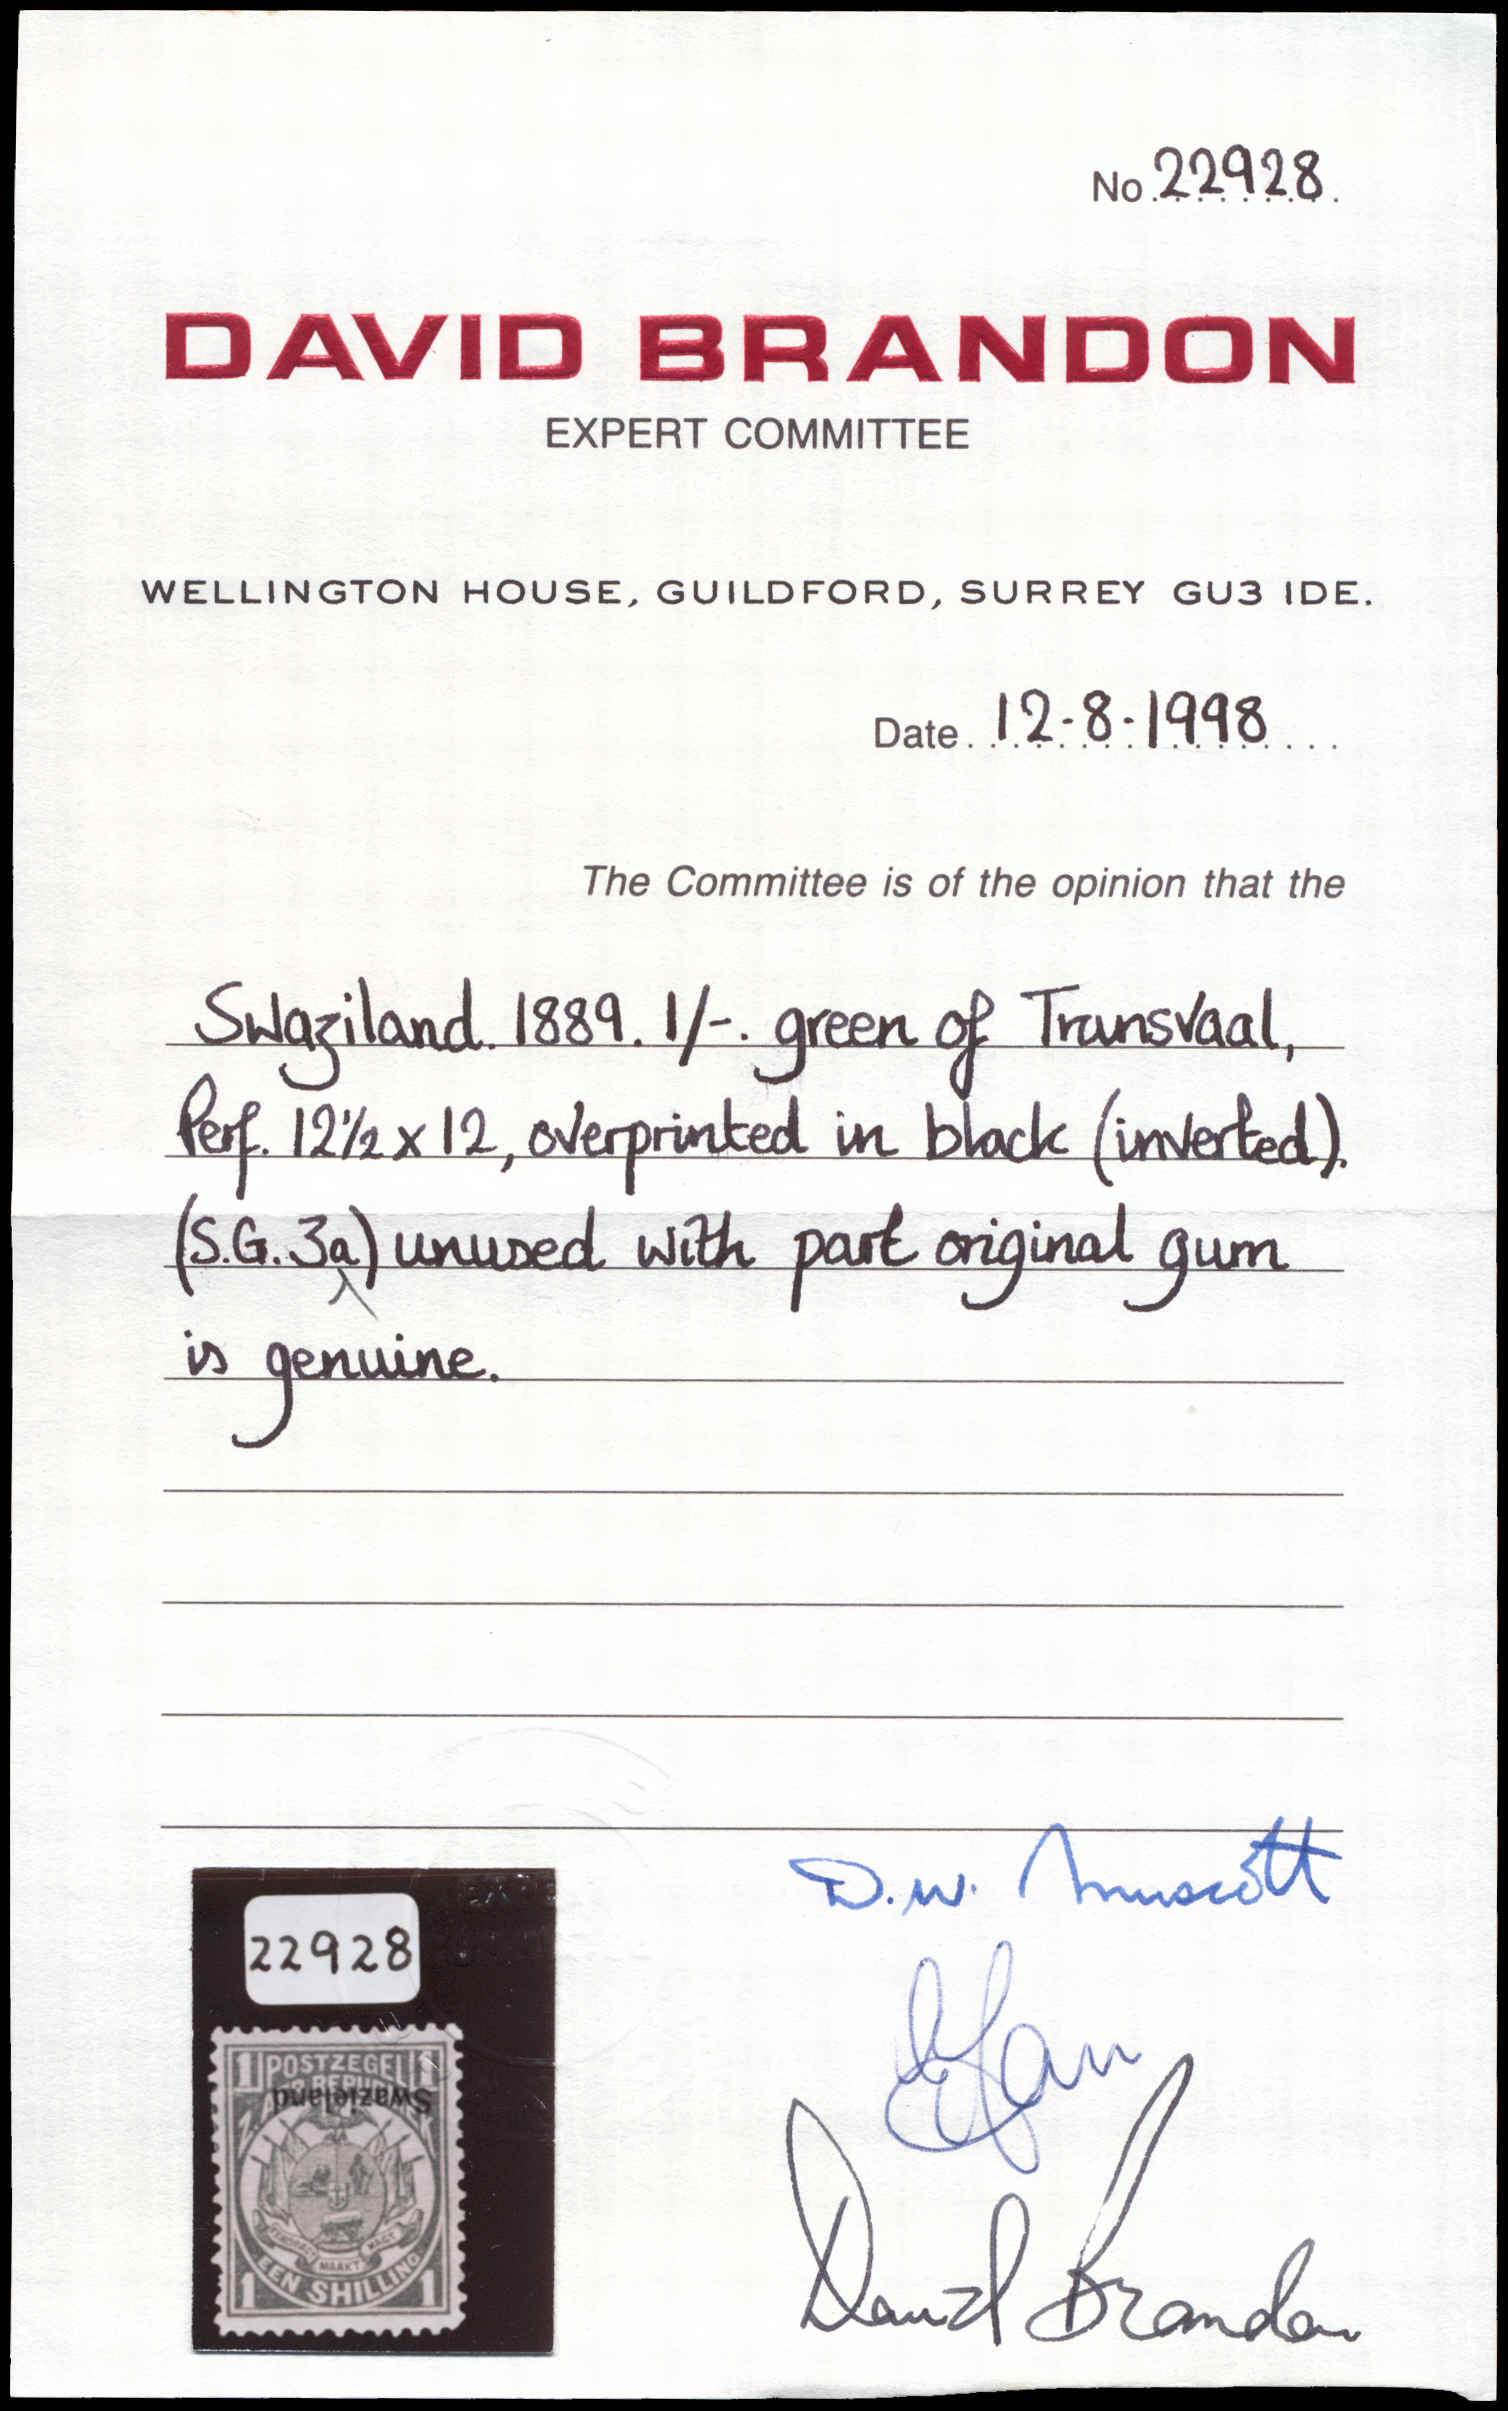 No 22928
DAVID BRANDON
EXPERT COMMITTEE
WELLINGTON HOUSE, GUILDFORD, SURREY GU3 1DE.
Date 12-8-1998
The Committee is of the opinion that the
Swaziland. 1889. 1/-. green of Transvaal,
Perf. 12½ x 12, overprinted in black (inverted).
(S.G. 3a) unused with part original gum
is genuine.
D.W. Muscott
David Brandon
22928
1 POSTZEGEL 1
Swazieland
MAAKT MAGT
EEN SHILLING
1 1